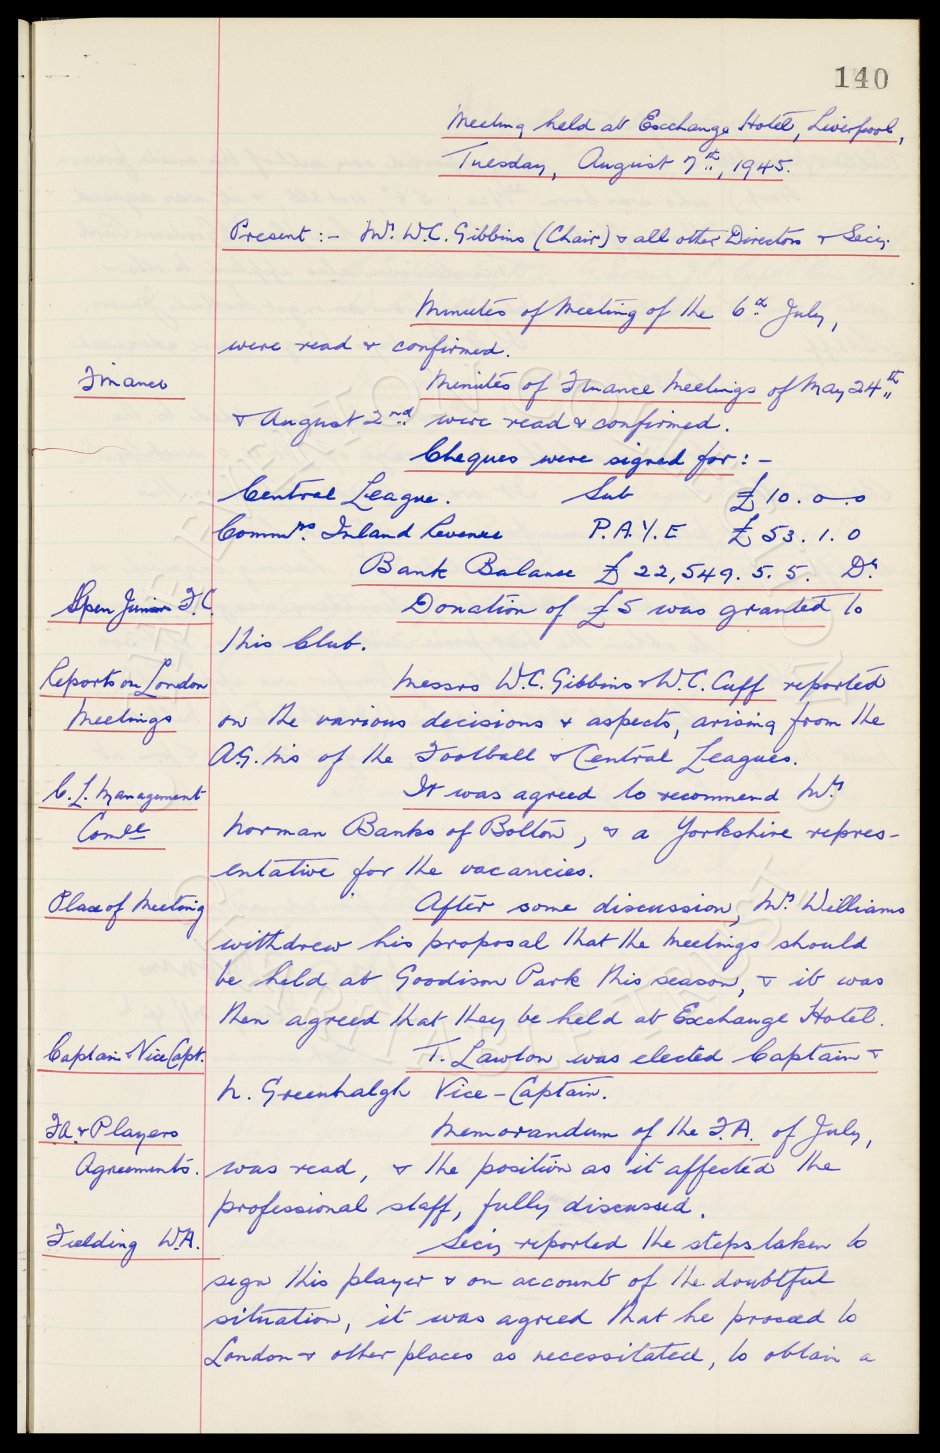 140
Meeting held at Exchange Hotel, Liverpool,
Tuesday, August 7th, 1945.
Present :- Mr. W.C. Gibbins (Chair) & all other Directors & Secy.
Minutes of Meeting of the 6th July,
were read & confirmed.
Finance
Minutes of Finance Meetings of May 24th
& August 2nd were read & confirmed.
Cheques were signed for :-
Central League. Sub £10.0.0
Commrs. Inland Revenue P.A.Y.E £53.1.0
Bank Balance £22,549.5.5. Dr
Spen Juniors F.C.
Donation of £5 was granted to
this Club.
Reports on London
Meetings
Messrs W.C. Gibbins & W.C. Cuff reported
on the various decisions & aspects, arising from the
A.G.Ms of the Football & Central Leagues.
C.L. Management
Comee
It was agreed to recommend Mr.
Norman Banks of Bolton, & a Yorkshire repres-
entative for the vacancies.
Place of Meeting
After some discussion, Mr. Williams
withdrew his proposal that the Meetings should
be held at Goodison Park this season, & it was
then agreed that they be held at Exchange Hotel.
Captain & Vice Capt.
T. Lawton was elected Captain &
N. Greenhalgh Vice-Captain.
F.A. & Players
Agreements.
Memorandum of the F.A. of July,
was read, & the position as it affected the
professional staff, fully discussed.
Fielding W.A.
Secy reported the steps taken to
sign this player & on account of the doubtful
situation, it was agreed that he proceed to
London & other places as necessitated, to obtain a